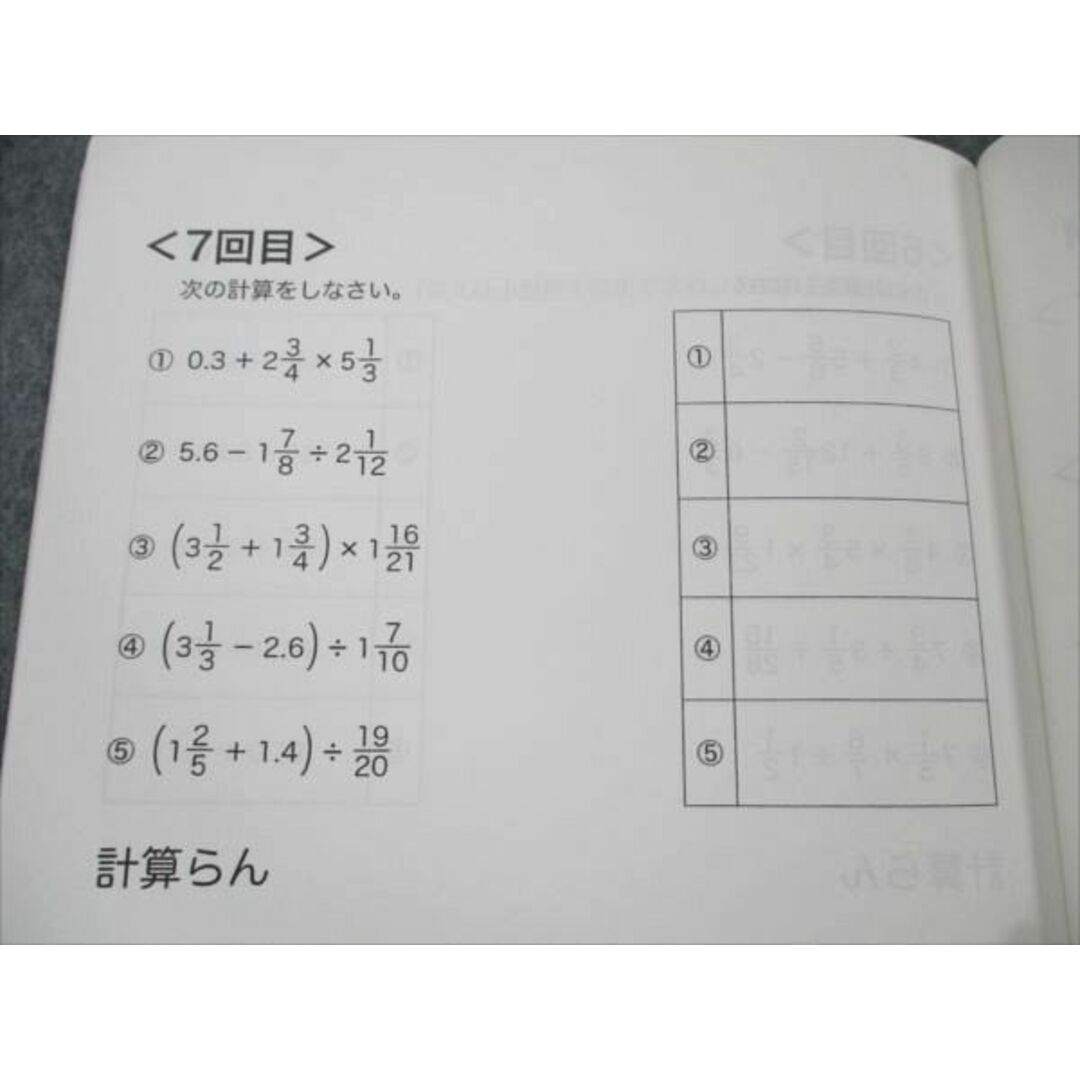 ＜7回目＞
次の計算をしなさい。
① 0.3 + 2 3/4 × 5 1/3
② 5.6 − 1 7/8 ÷ 2 1/12
③ (3 1/2 + 1 3/4) × 1 16/21
④ (3 1/3 − 2.6) ÷ 1 7/10
⑤ (1 2/5 + 1.4) ÷ 19/20
①
②
③
④
⑤
計算らん